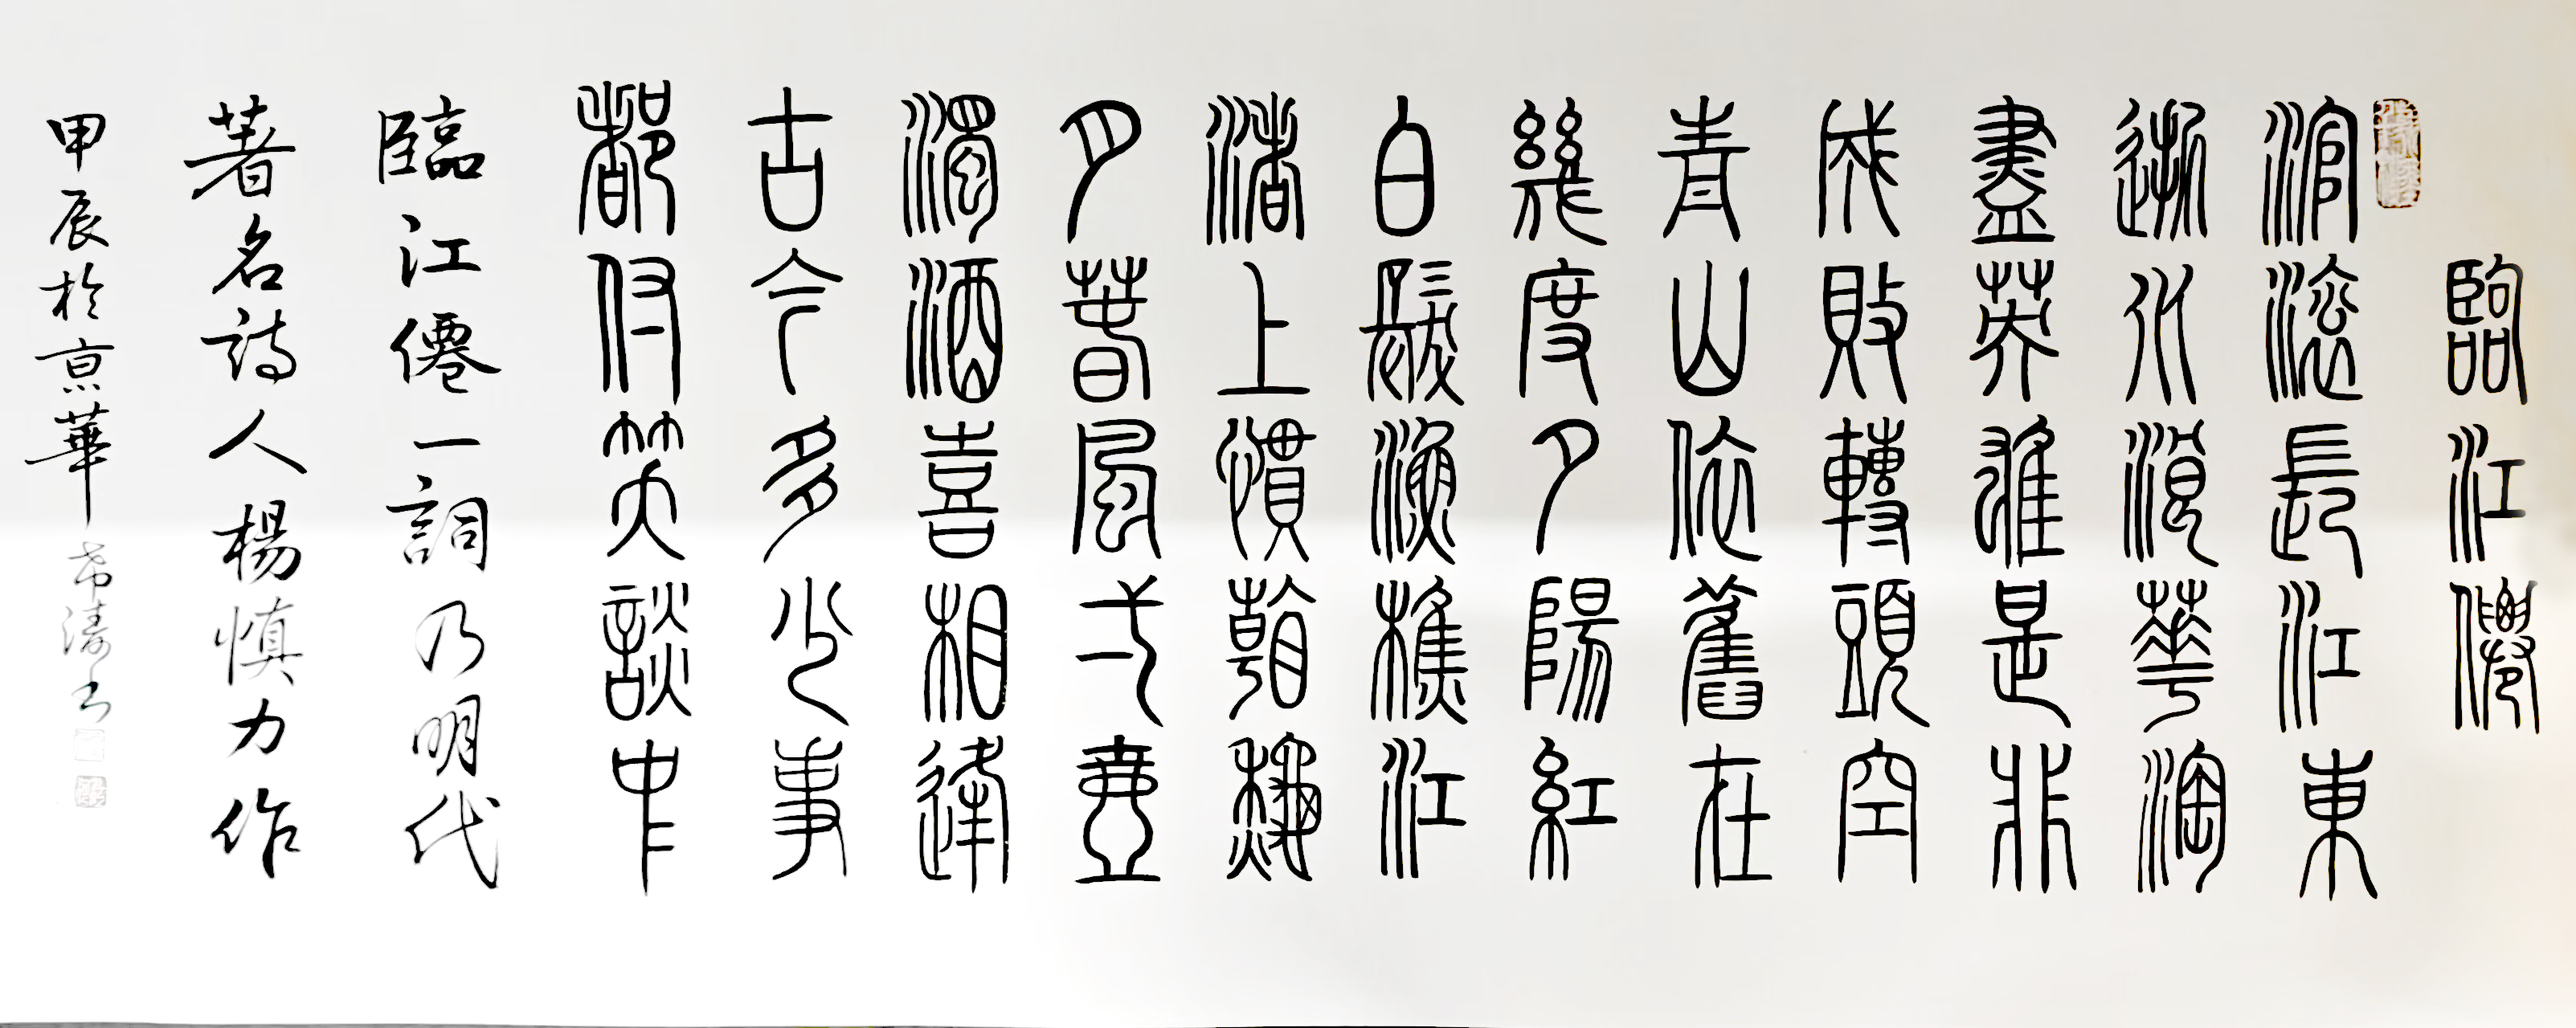 臨江僊
滾滾長江東
逝水浪華淘
盡英雄是非
成敗轉頭空
青山依舊在
幾度夕陽紅
白髮漁樵江
渚上慣看穐
月春風弌壺
濁酒喜相逢
古今多少事
都付笑談中
臨江僊一詞乃明代
著名詩人楊慎力作
甲辰於京華希濤书